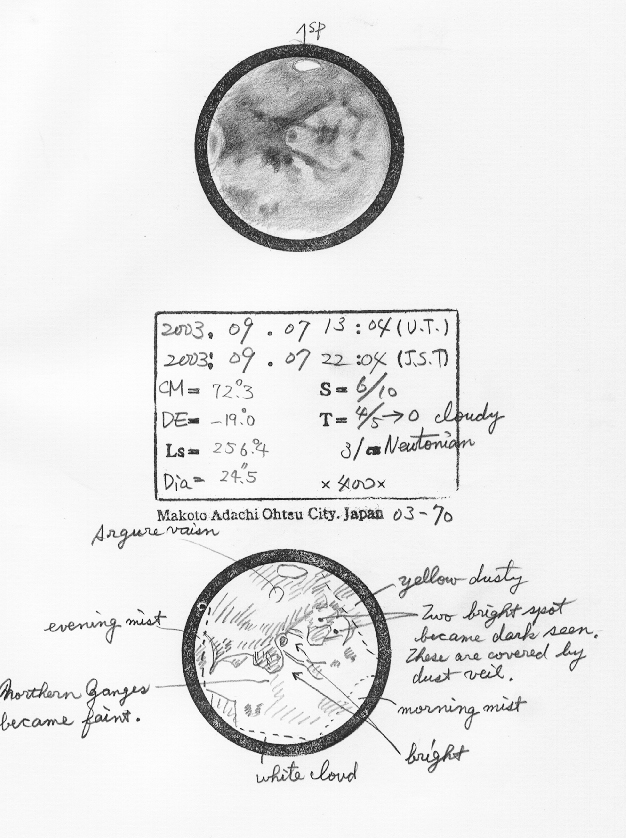 ↑SP
2003. 09 . 07 13 : 04 (U.T.)
2003: 09 . 07 22 :04 (J.S.T)
CM= 72°.3 S= 6/10
DE= -19°.0 T= 4/5→0 cloudy
Ls= 256°.4 Newtonian
Dia= 24".5 ×400×
Makoto Adachi Ohtsu City. Japan 03-70
Argure vaisn
yellow dusty
evening mist
Two bright spot
became dark seen.
These are covered by
dust veil.
Northern Ganges
became faint.
morning mist
bright
white cloud